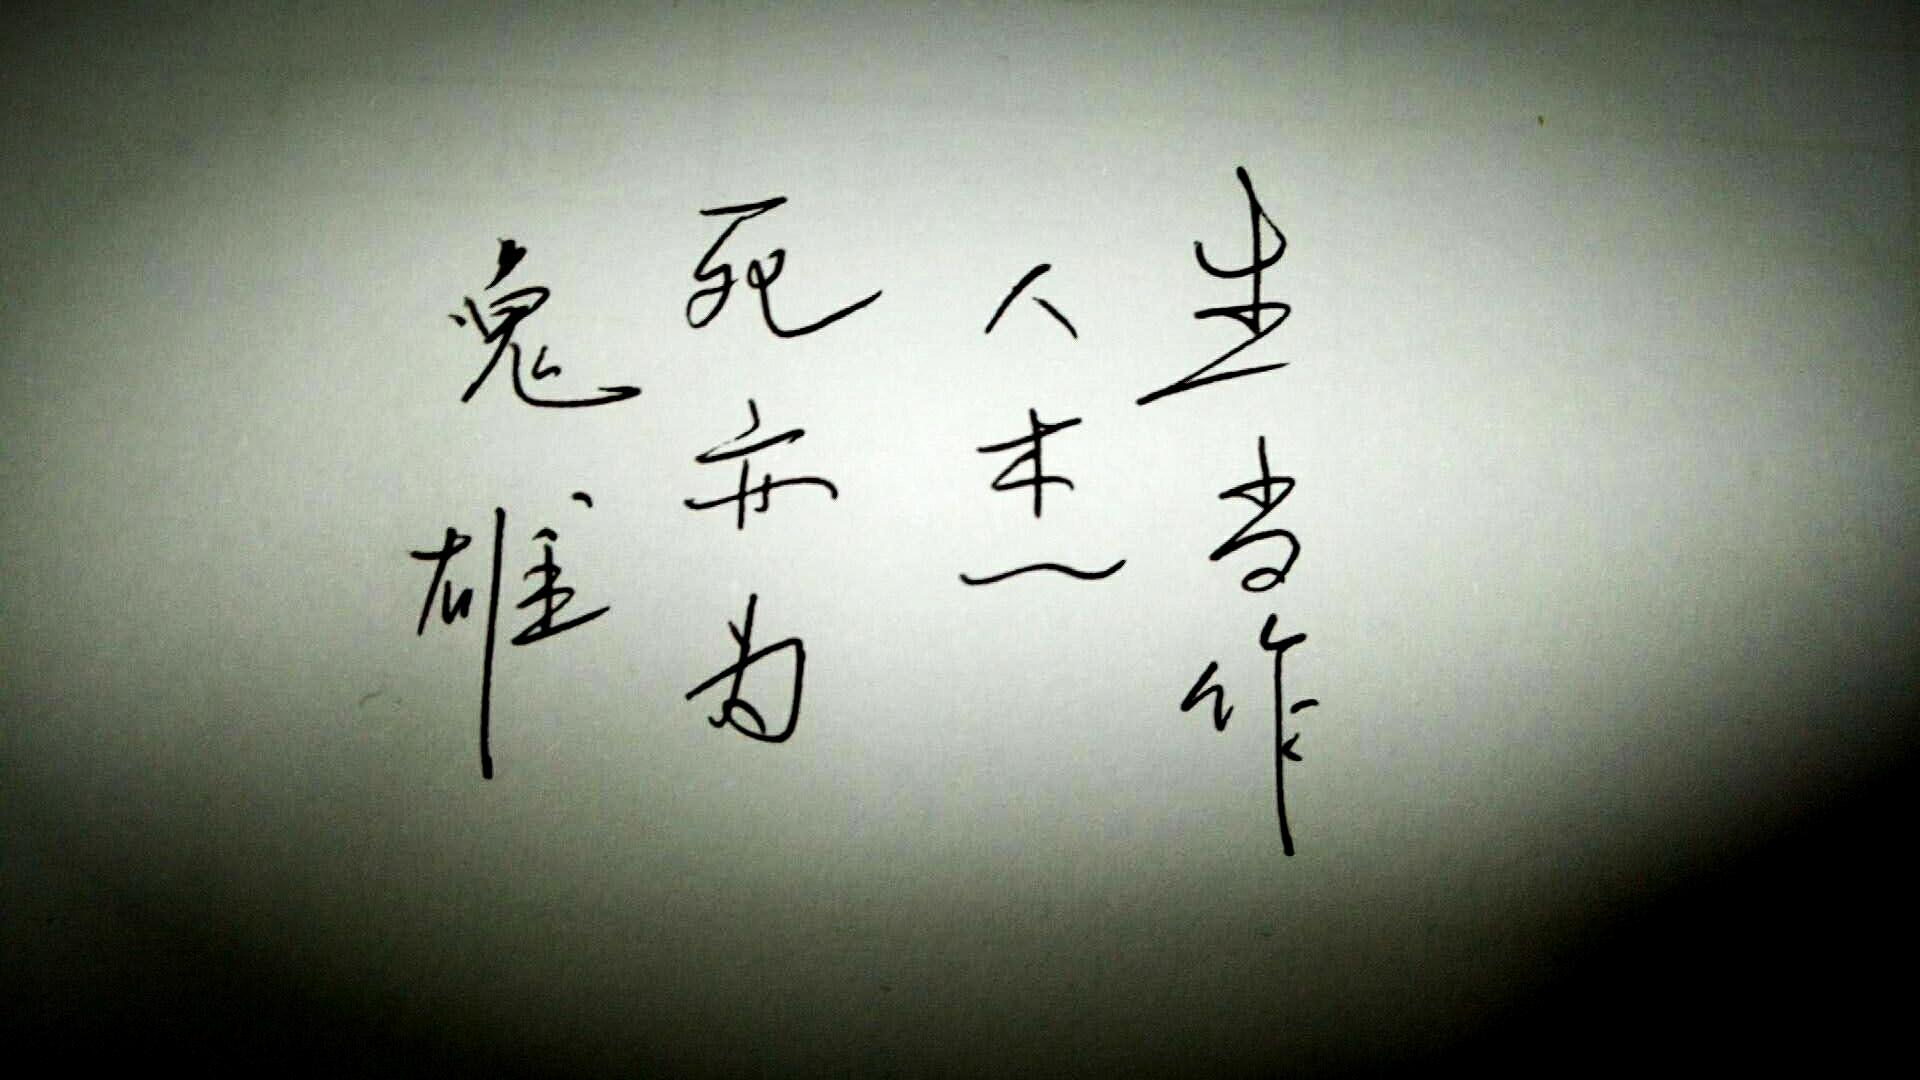 生当作
人杰
死亦为
鬼雄